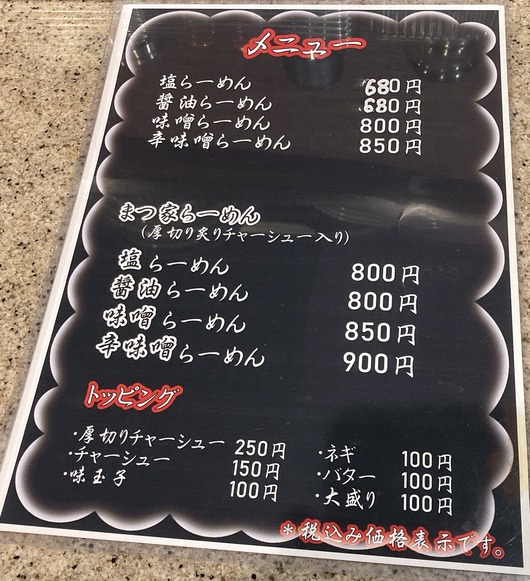 メニュー
塩らーめん 680円
醤油らーめん 680円
味噌らーめん 800円
辛味噌らーめん 850円
まつ家らーめん
(厚切り炙りチャーシュー入り)
塩らーめん 800円
醤油らーめん 800円
味噌らーめん 850円
辛味噌らーめん 900円
トッピング
・厚切りチャーシュー 250円
・チャーシュー 150円
・味玉子 100円
・ネギ 100円
・バター 100円
・大盛り 100円
*税込み価格表示です。